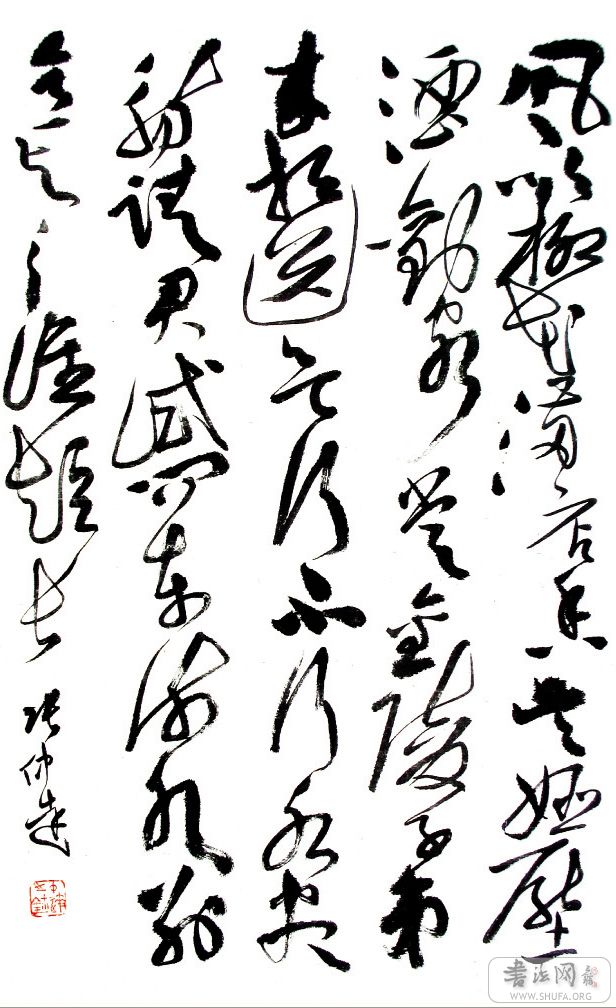 風吹柳花滿店香吳姬壓
酒勸客嘗金陵子弟
來相送欲行不行各盡
觴請君試問東流水別
意與之誰短長
張仲
書法网
WWW.SHUFA.ORG